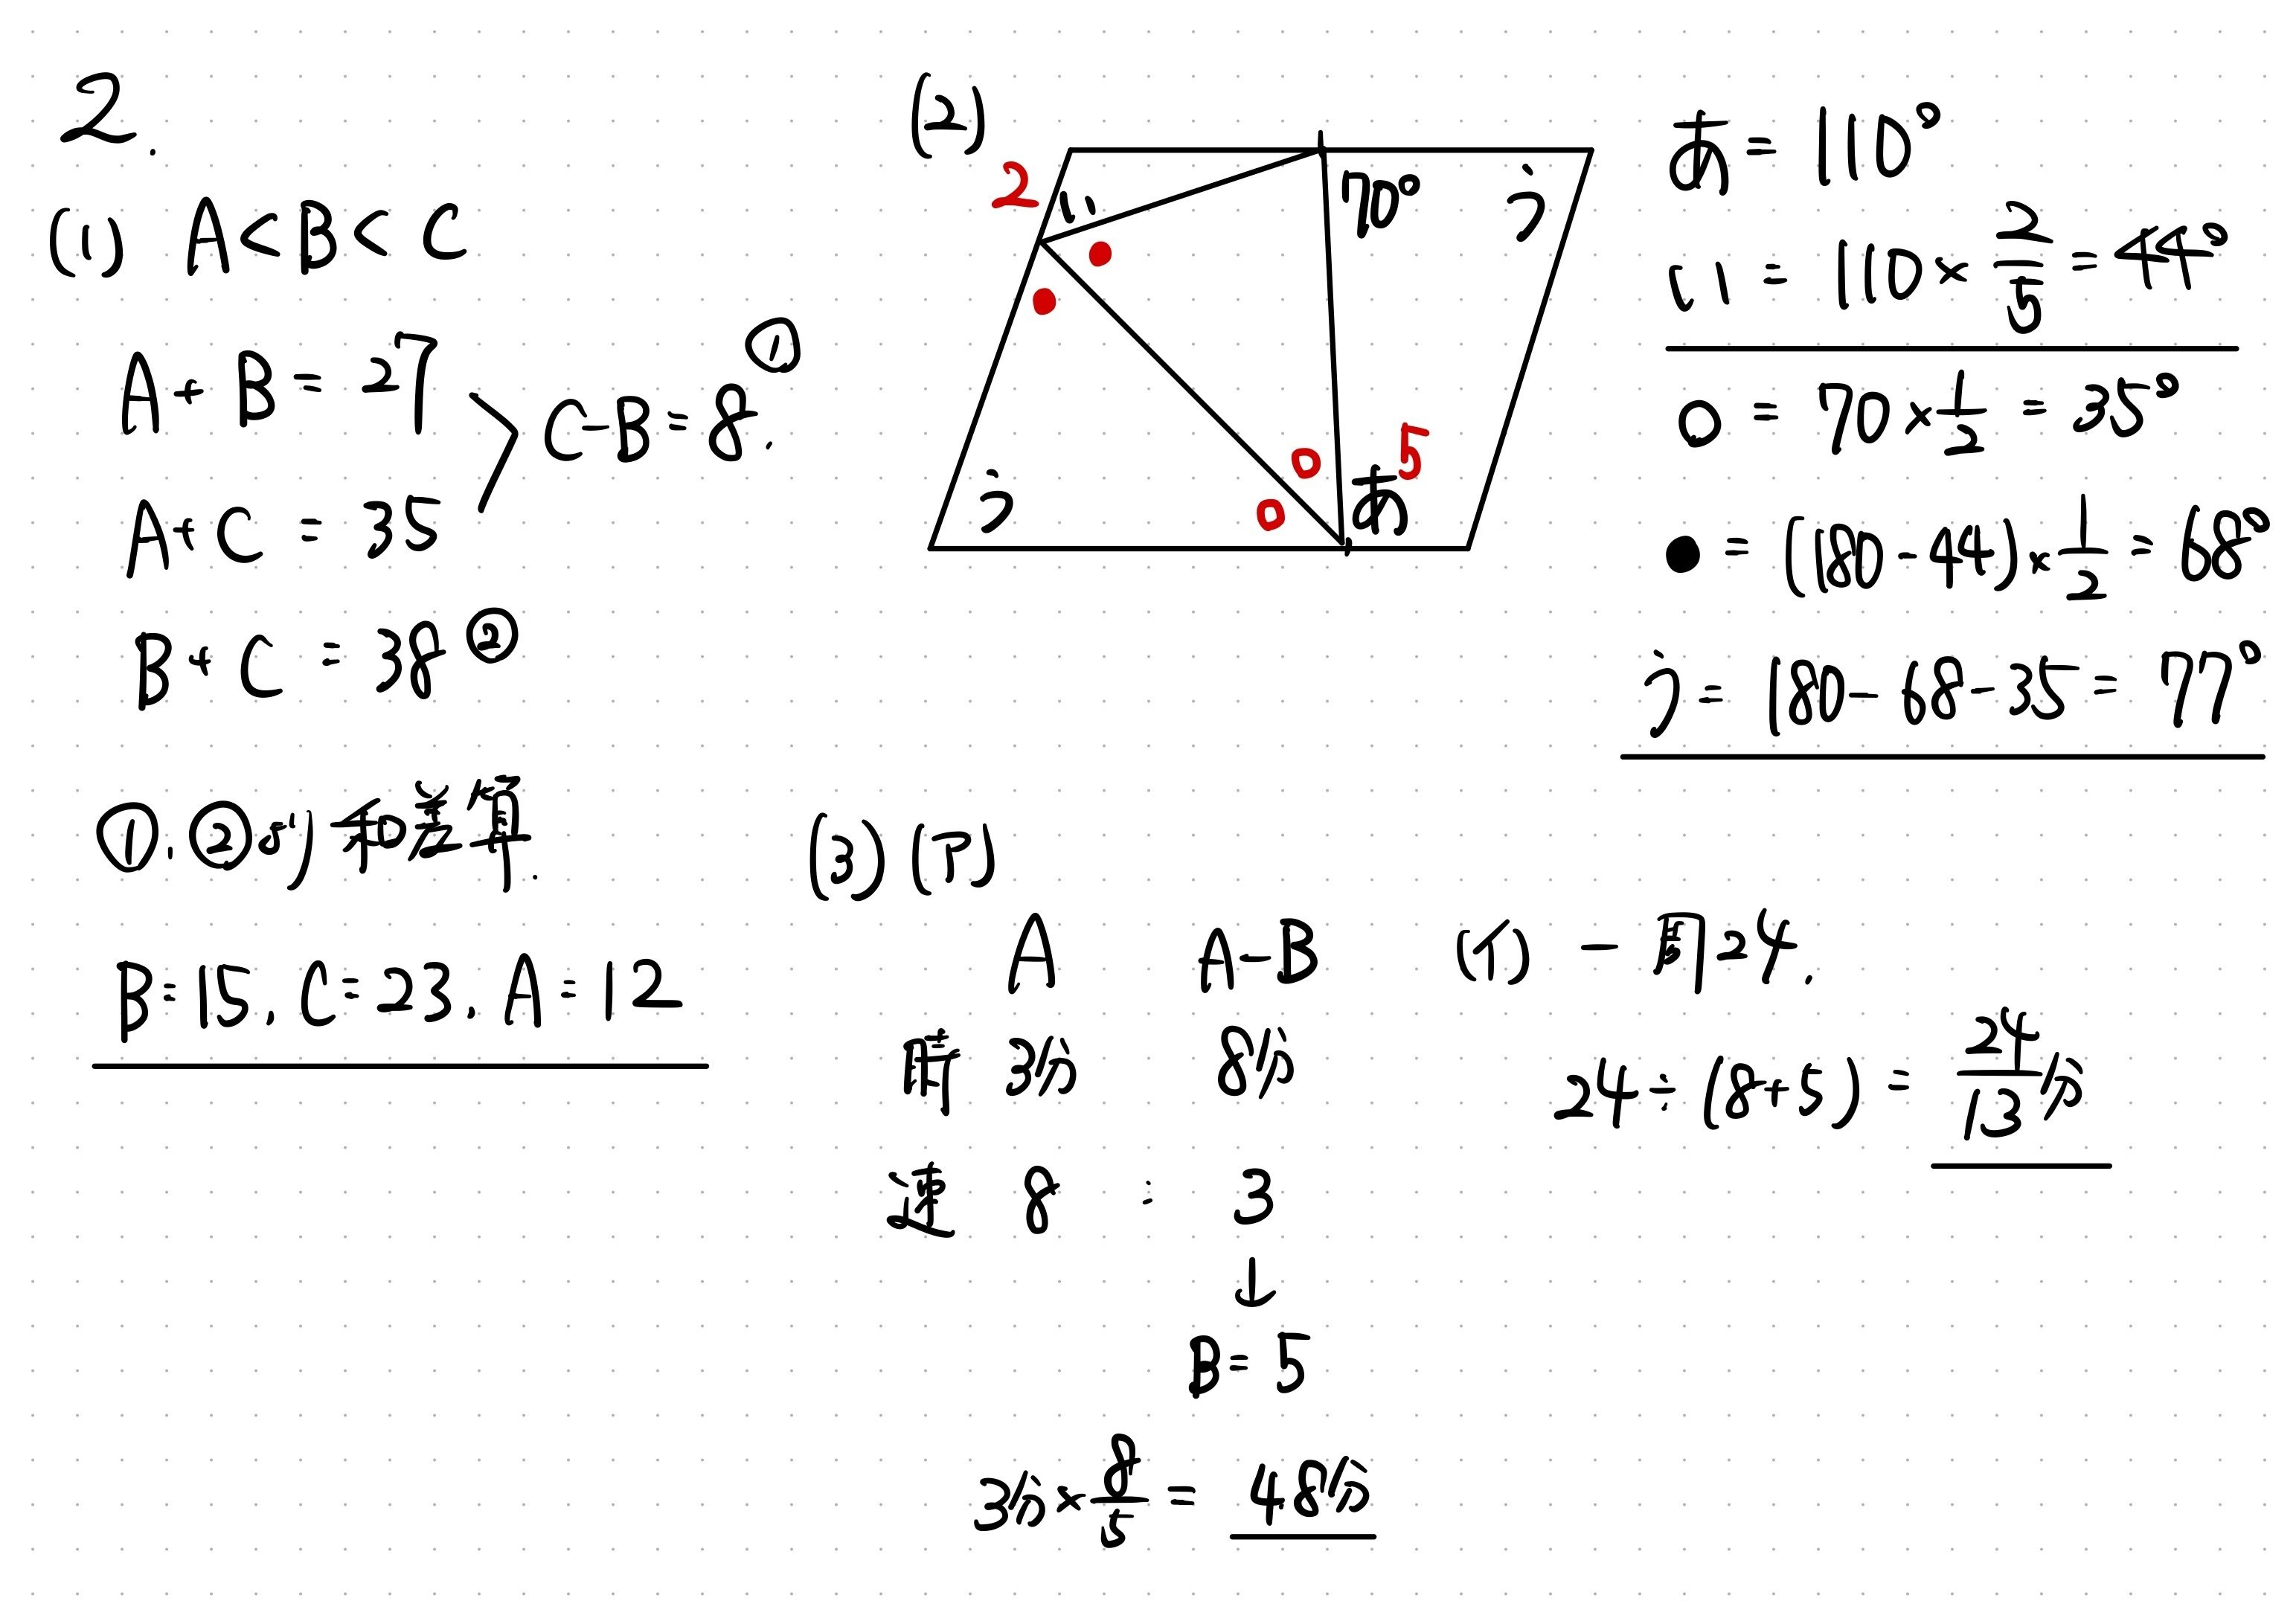 2.
(1) A<B<C
A+B=27
C-B=8. ①
A+C=35
B+C=38 ②
①.②より和差算.
B=15, C=23, A=12
(2)
2
い
70°
う
う
5
あ
あ=110°
い=110×2/5=44°
○=70×1/2=35°
●=(180-44)×1/2=68°
う=180-68-35=77°
(3) (ア)
A A-B
時 3分 8分
速 8 : 3
↓
B=5
3分×8/5=4.8分
(イ) 一周24.
24÷(8+5)=24/13分